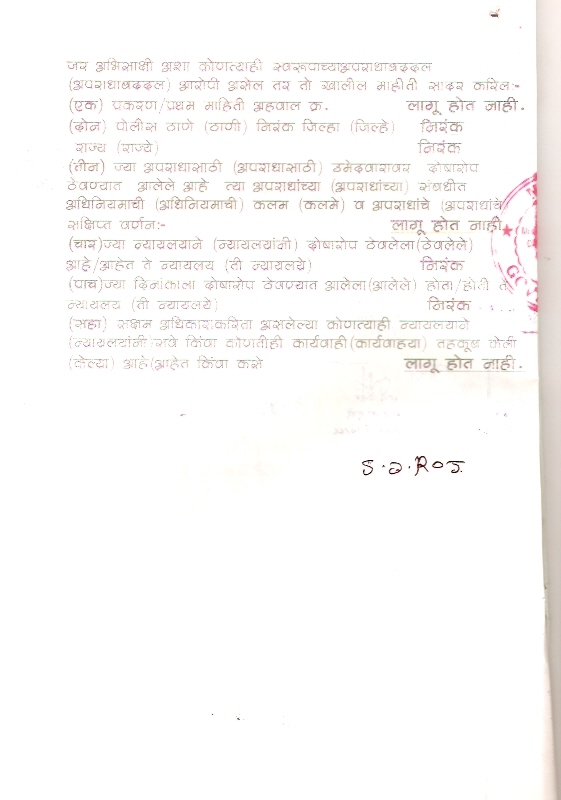 जर अभिसाक्षी अशा कोणत्याही स्वरूपाच्याअपराधाबददल
(अपराधाबददल) आरोपी असेल तर तो खालील माहीती सादर करिल:-
(एक) प्रकरण/प्रथम माहिती अहवाल क्र. लागू होत नाही.
(दोन) पोलीस ठाणे (ठाणी) निरंक जिल्हा (जिल्हे) निरंक
राज्य (राज्ये) निरंक
(तीन) ज्या अपराधासाठी (अपराधासाठी) उमेदवारावर दोषारोप
ठेवण्यात आलेले आहे त्या अपराधांच्या (अपराधांच्या) संबधीत
अधिनियमाची (अधिनियमाची) कलम (कलमे) व अपराधांचे (अपराधांचे
संक्षिप्त वर्णन:- लागू होत नाही.
(चार)ज्या न्यायलयाने (न्यायलयांनी) दोषारोप ठेवलेला(ठेवलेले)
आहे/आहेत ते न्यायलय (ती न्यायलये) निरंक
(पाच)ज्या दिनांकाला दोषारोप ठेवण्यात आलेला(आलेले) होता/होती ते
न्यायलय (ती न्यायलये) निरंक
(सहा) सक्षम अधिकाराकरिता असलेल्या कोणत्याही न्यायलयाने
(न्यायलयांनी सर्व किंवा कोणतीही कार्यवाही(कार्यवाहया) तहकूब केली
(केल्या) आहे(आहेत किंवा कसे लागू होत नाही.